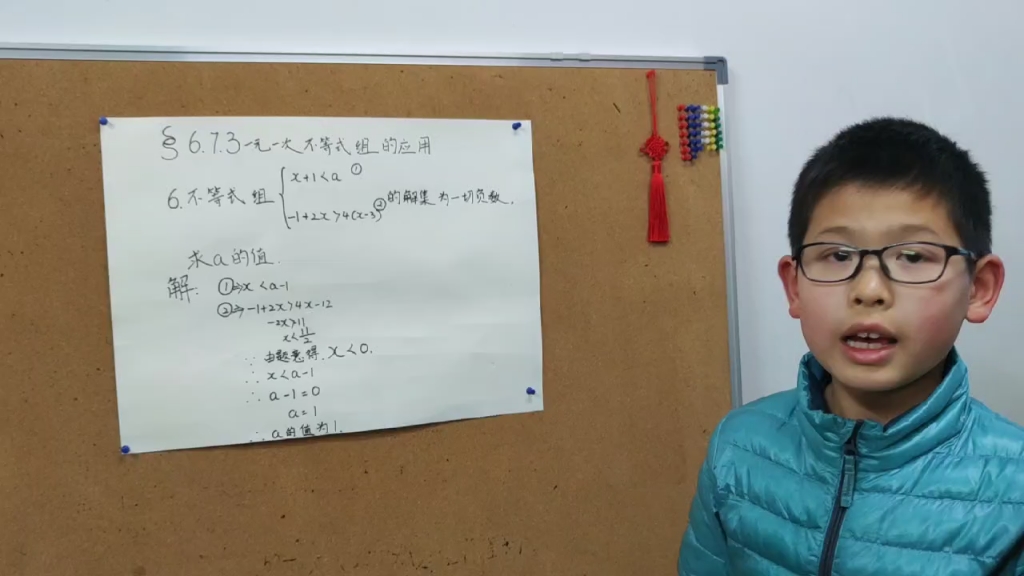 §6.7.3 一元一次不等式组的应用
x+1<a ①
6.不等式组 的解集为一切负数.
-1+2x>4(x-3)②
求a的值.
解: ①⇒x<a-1
②⇒-1+2x>4x-12
-2x>11
x<11/2
∵由题意得,x<0.
∴x<a-1
∴a-1=0
a=1
∴a的值为1.